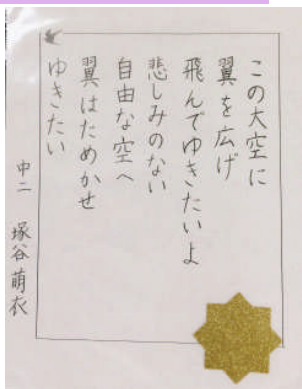 この大空に
翼を広げ
飛んでゆきたいよ
悲しみのない
自由な空へ
翼はためかせ
ゆきたい
中二 塚谷萌衣